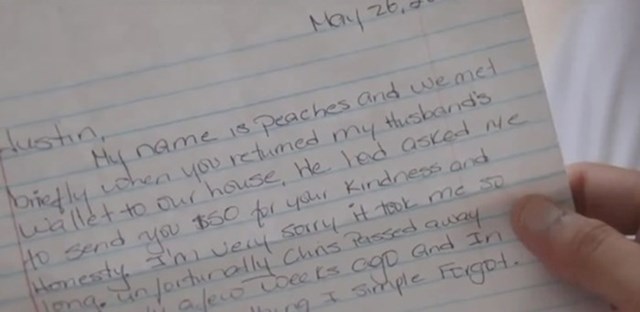 May 26,
Justin,
My name is Peaches and we met
briefly when you returned my Husband's
wallet to our house. He had asked me
to send you $50 for your Kindness and
Honesty. I'm very sorry it took me so
long. unfortunally Chris Passed away
a few weeks ago and In
I simple Forgot.